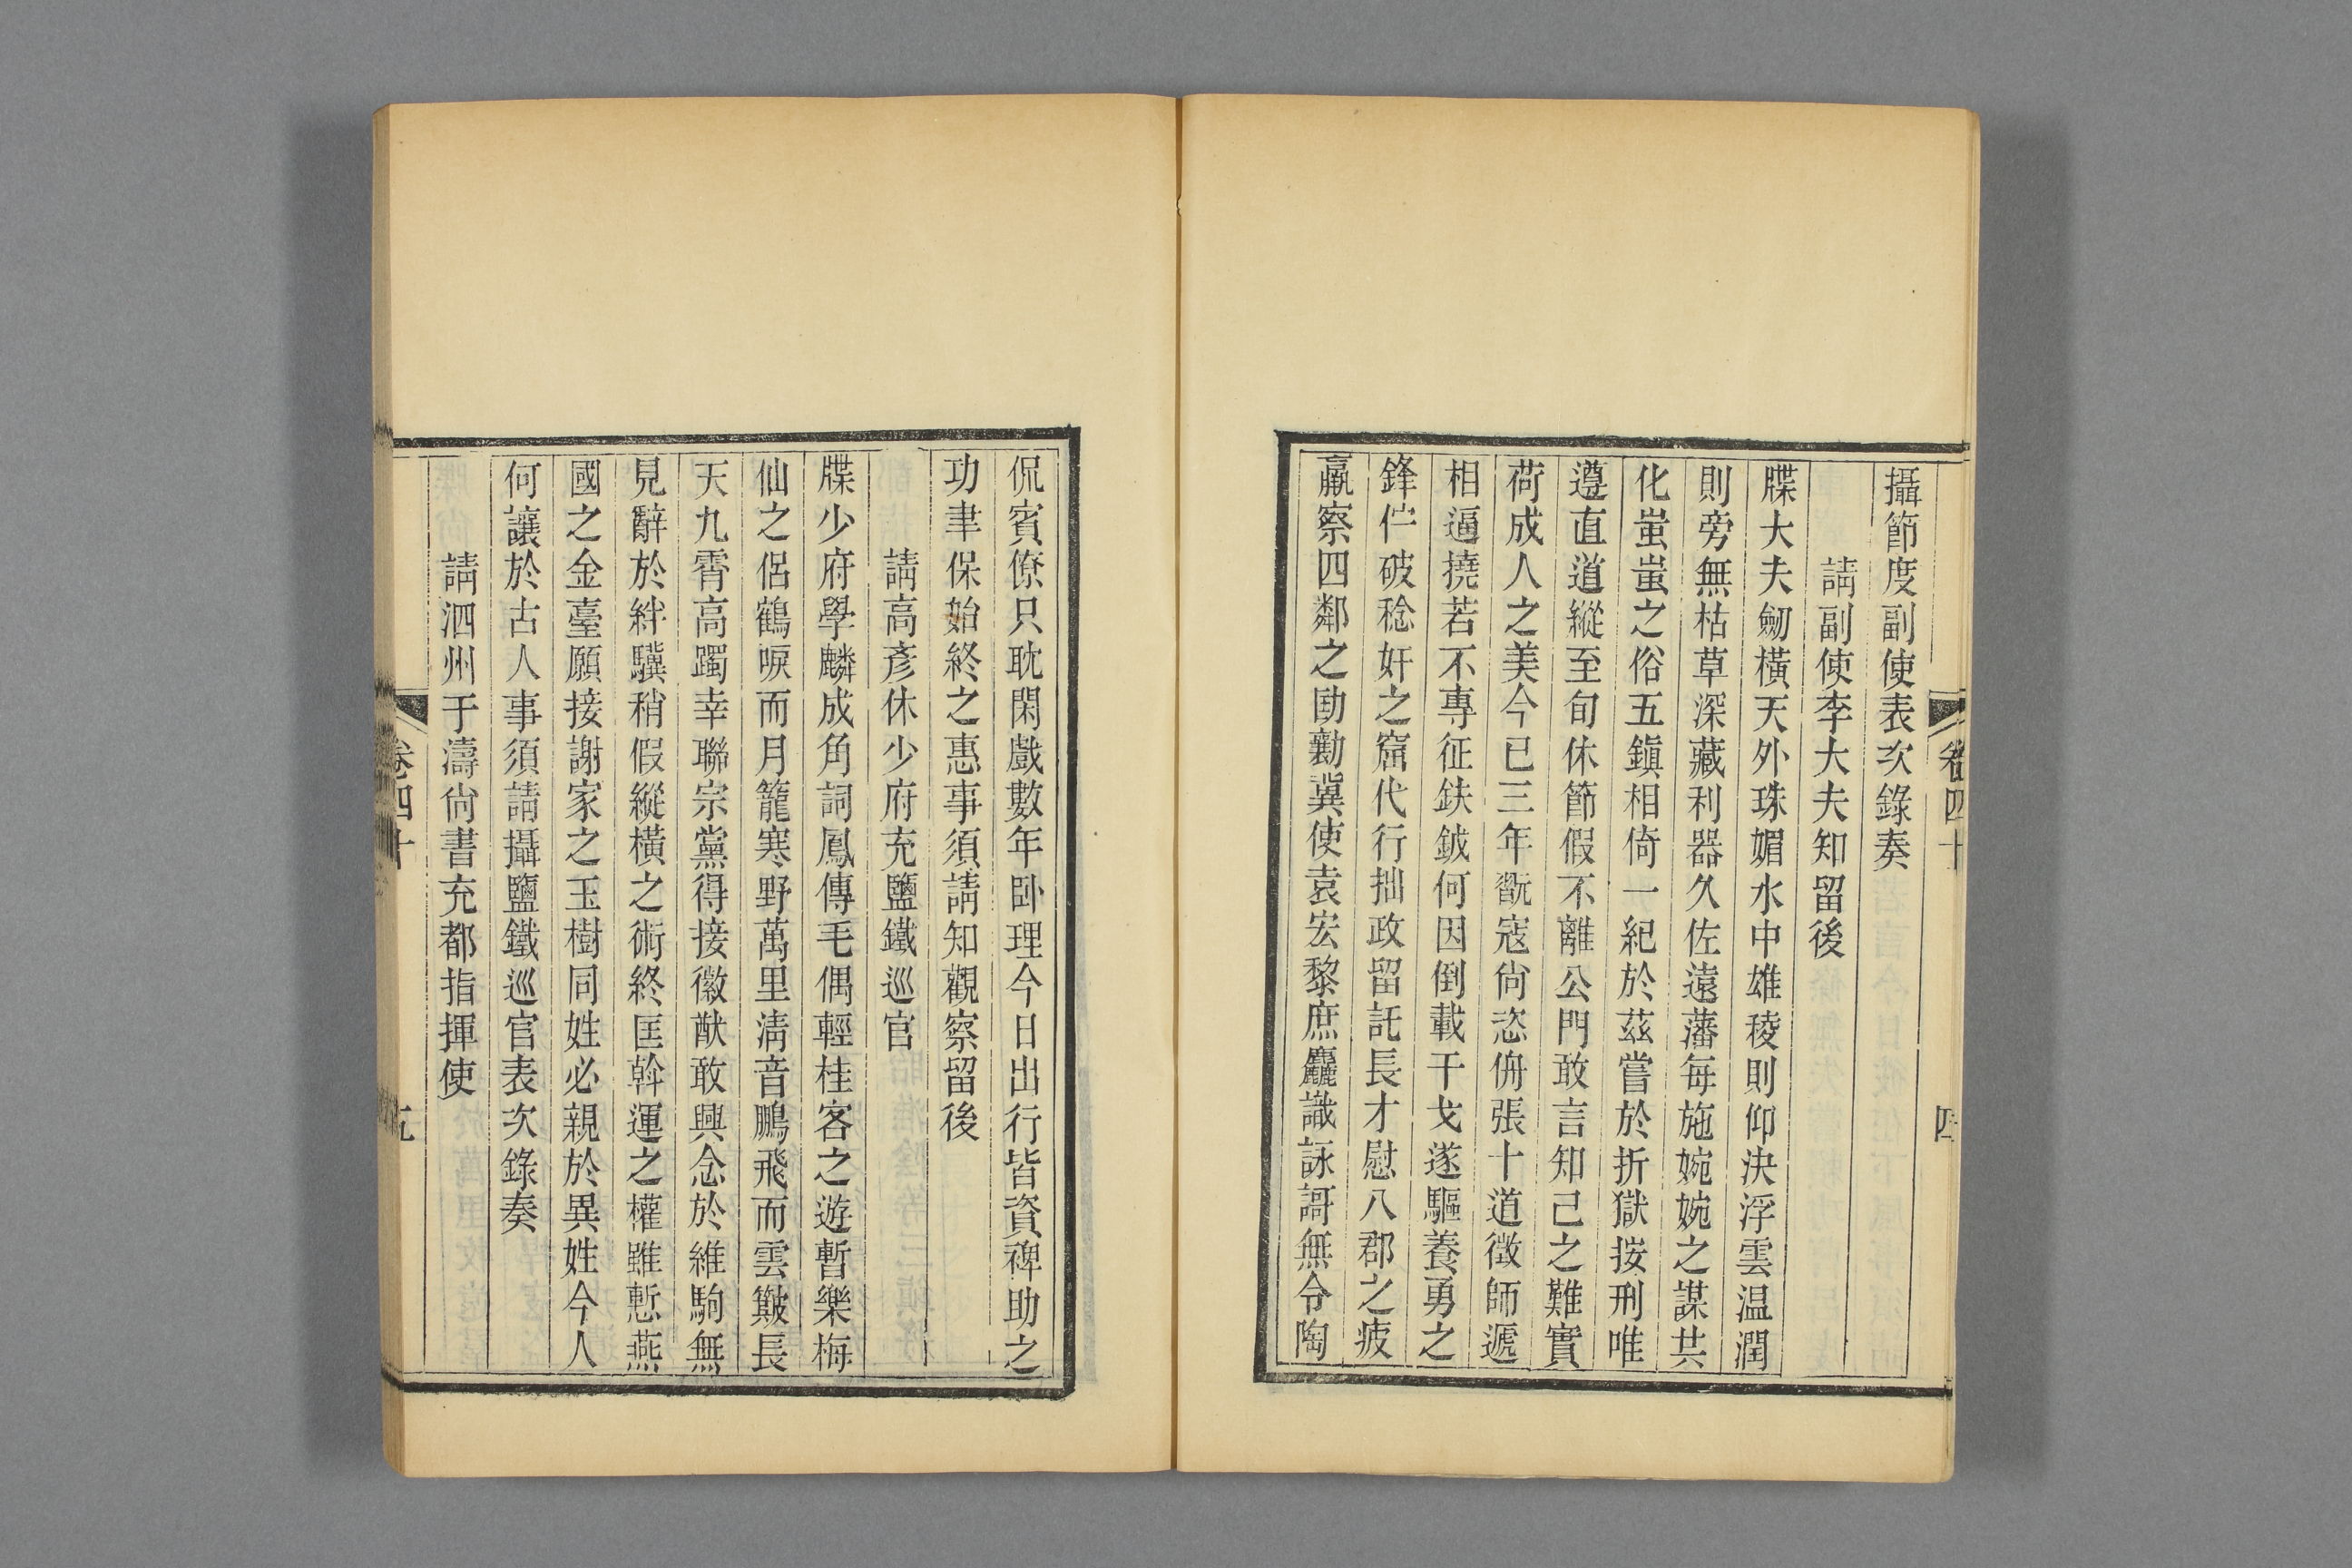 攝節度副使表次錄奏
請副使李大夫知留後
牒大夫劒橫天外珠媚水中雄稜則仰決浮雲温潤
則旁無枯草深藏利器久佐遠藩每施婉婉之謀共
化蚩蚩之俗五鎭相倚一紀於茲嘗於折獄按刑唯
遵直道縱至旬休節假不離公門敢言知己之難實
荷成人之美今已三年翫寇尙恣侜張十道徵師遞
相逼撓若不專征鈇鉞何因倒載干戈遂驅養勇之
鋒伫破稔奸之窟代行拙政留託長才慰八郡之疲
羸察四鄰之勤勦冀使袁宏黎庶麤識詠謌無令陶
卷四十
四
侃賓僚只耽閑戲數年卧理今日出行皆資裨助之
功聿保始終之惠事須請知觀察留後
請高彥休少府充鹽鐵巡官
牒少府學麟成角詞鳳傳毛偶輕桂客之遊暫樂梅
仙之侶鶴唳而月籠寒野萬里淸音鵬飛而雲皺長
天九霄高躅幸聯宗黨得接徽猷敢興念於維駒無
見辭於絆驥稍假縱橫之術終匡斡運之權雖慙燕
國之金臺願接謝家之玉樹同姓必親於異姓今人
何讓於古人事須請攝鹽鐵巡官表次錄奏
請泗州于濤尙書充都指揮使
卷四十
五